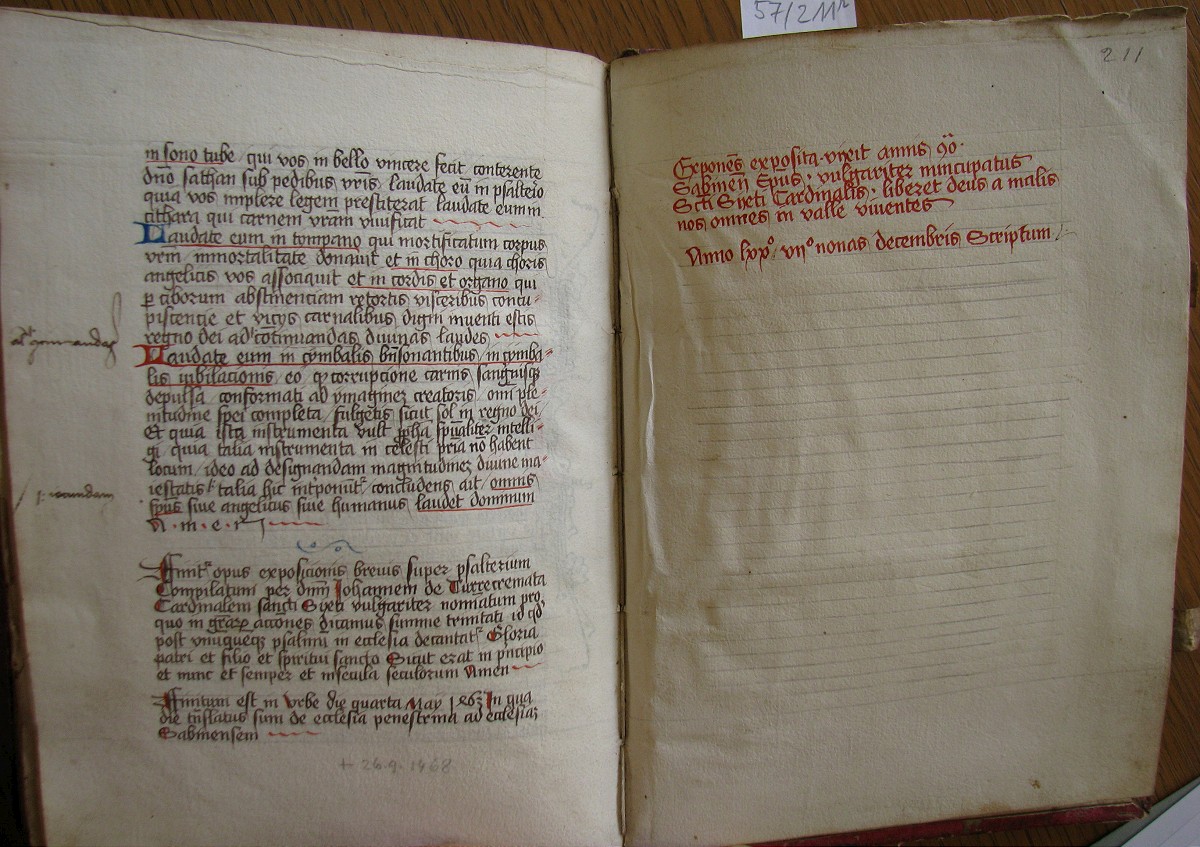 in sono tube qui vos in bello vincere fecit conterente
dn̄o sathan sub pedibus vr̄is laudate eū in psalterio
quia vos implere legem prestiterat laudate eum in
cithara qui carnem vram vivificat
Laudate eum in tympano qui mortificatum corpus
vrm inmortalitate donavit et in choro quia choris
angelicis vos associavit et in cordis et organo qui
ꝑ ciborum abstinenciam retortis visceribus concu-
piscencie et vicijs carnalibus digni inventi estis
regno dei ad continuandas divinas laudes
Laudate eum in cymbalis bn̄sonantibus in cymba-
lis iubilacionis eo ꝙ corrupcione carnis sanguisqꝫ
depulsa conformati ad ymaginem creatoris omī ple-
nitudine spei completa fulgetis sicut sol in regno dei
Et quia ista instrumenta vult ꝓpha spūaliter intelli-
gi quia talia instrumenta in celesti pria nō habent
locum ideo ad designandam magnitudinem divine ma-
iestatis talia hic concludens ait omnis
spūs sive angelicus sive humanus laudet dominum
A·m·e·n
Finit opus exposicionis brevis super psalterium
Compilatum per dnm̄ Johannem de Turrecremata
Cardinalem sancti Sixti vulgariter nominatum pro
quo in acciones dicamus summe trinitati id qd
post vnumquemqꝫ psalmū in ecclesia decantat Gloria
patri et filio et spiritui sancto Sicut erat in principio
et nunc et semper et in secula seculorum Amen
Finitum est in Vrbe die quarta May In qua
die trn̄slatus sum de ecclesia penestrina ad ecclesiam
Sabinensem
+ 26.9.1468
57/211r
211
Exponens exposita vixit annis 90.
Sabineñ Epus vulgariter nuncupatus
Scti Sixti Cardinalis liberet deus a malis
nos omnes in valle viventes
Anno lxx° vii° nonas decembris Scriptum